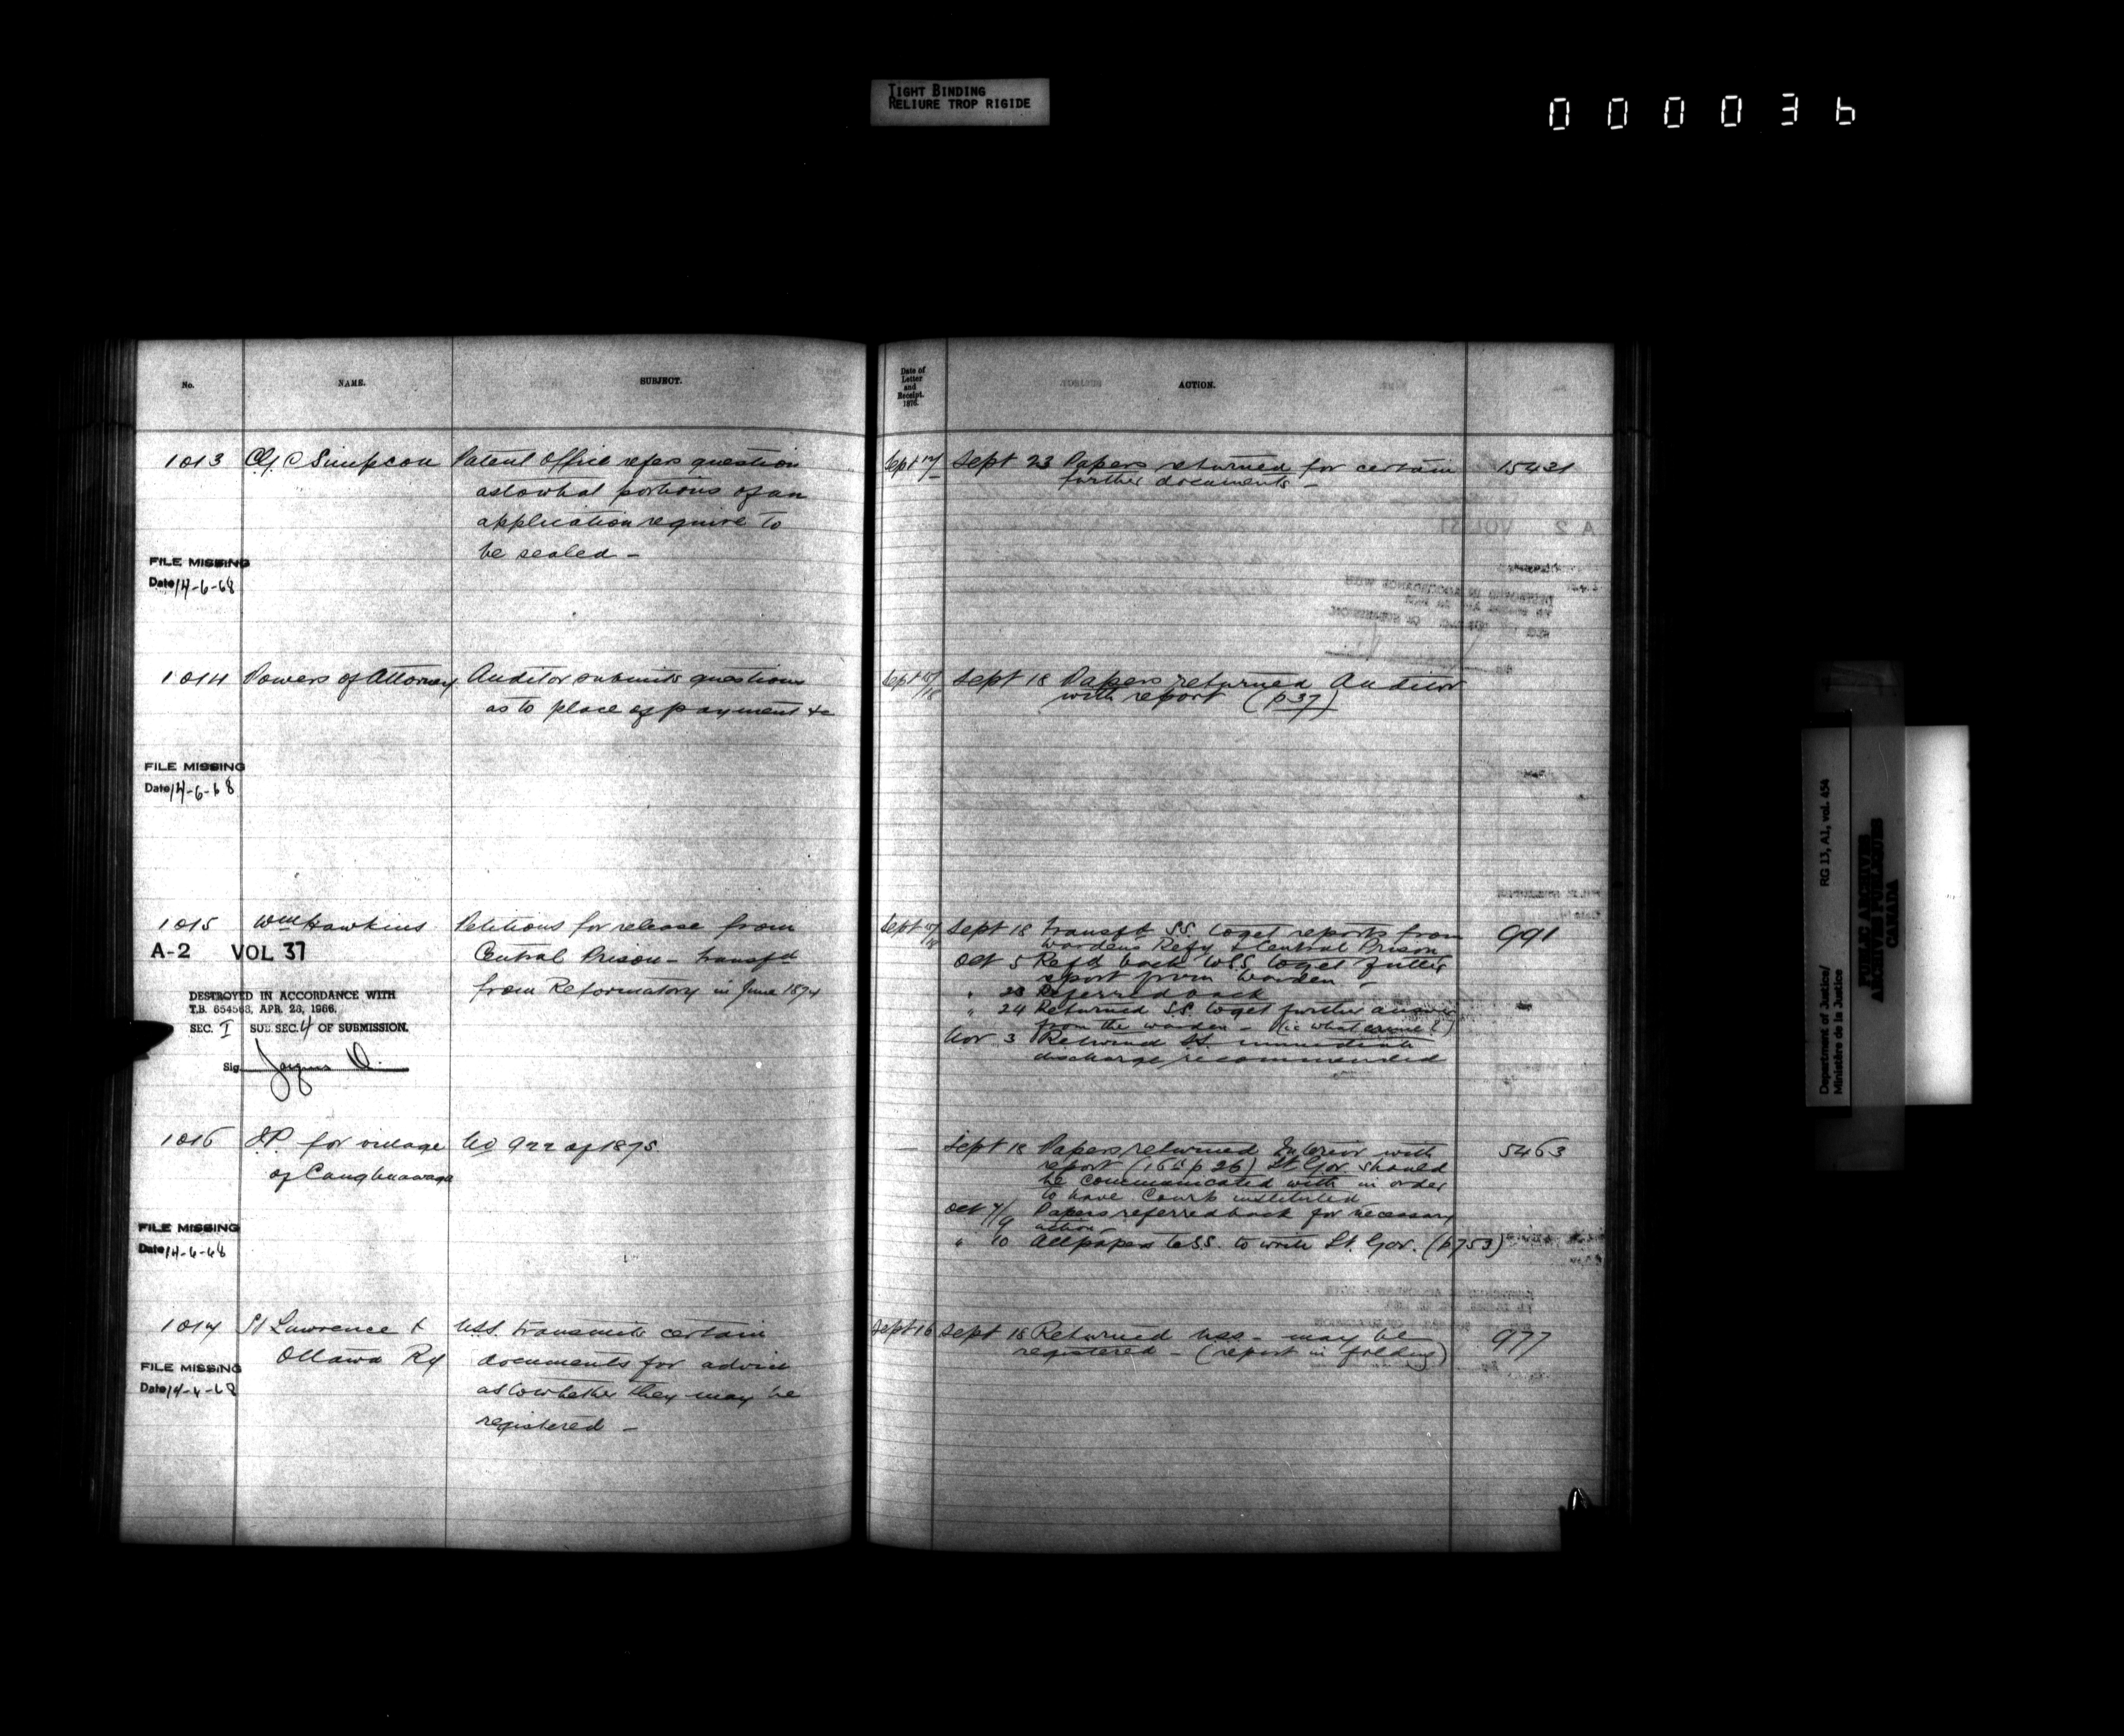 TIGHT BINDING
RELIURE TROP RIGIDE
000036
No. NAME. SUBJECT.
1013 C Simpson Patent Office refers question
as to what portions of an
application require to
be sealed –
FILE MISSING
Date 14-6-68
1014 Powers of Attorney Auditor submits questions
as to place of payment &c
FILE MISSING
Date 14-6-68
1015 Wm Hawkins Petitions for release from
A-2 VOL 37 Central Prison – transfd
from Reformatory in June 1874
DESTROYED IN ACCORDANCE WITH
T.B. 654563, APR. 28, 1966.
SEC. I SUB SEC. 4 OF SUBMISSION.
Sig.
1016 J.P. for village No 922 of 1875.
of Caughnawaga
FILE MISSING
Date 14-6-68
1017 St Lawrence & USS. transmits certain
Ottawa Ry documents for advice
FILE MISSING
Date 14-6-68 as to whether they may be
registered –
Date of
Letter
and
Receipt.
1876.
ACTION.
Sept Sept 23 Papers returned for certain 15421
further documents –
Sept Sept 18 Papers returned Auditor
with report (p 37)
Sept Sept 18 Transfd SS. to get reports from 991
wardens Refy & Central Prison
Oct 5 Refd back to SS. to get further
report from Warden –
" 23 Referred back
" 24 Returned SS. to get further
from the warden – (ie what crime?)
Nov 3 Returned SS. immediate
discharge recommended
Sept 18 Papers returned Interior with 5463
report (p 26) Lt Gov. should
be communicated with in order
to have Court instituted
Oct 7/9 Papers referred back for necessary
action
" 10 All papers to SS. to write Lt. Gov. (p 753)
Sept 16 Sept 18 Returned USS – may be 977
registered – (report in folding)
Department of Justice/ RG 13, A1, vol. 454
Ministère de la Justice
PUBLIC ARCHIVES
ARCHIVES PUBLIQUES
CANADA